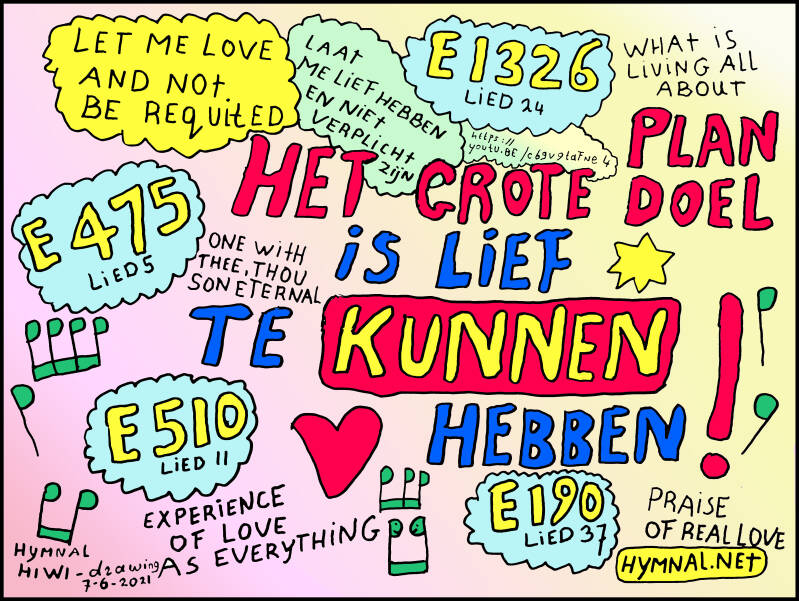 LET ME LOVE
AND NOT
BE REQUITED
LAAT
ME LIEF HEBBEN
EN NIET
VERPLICHT
ZIJN
E 1326
LIED 24
https://
youtu.BE/c69v9taFwe4
WHAT IS
LIVING ALL
ABOUT
PLAN
HET GROTE DOEL
IS LIEF
TE KUNNEN
HEBBEN!
E 475
LIED 5
ONE WITH
THEE, THOU
SON ETERNAL
E 510
LIED 11
EXPERIENCE
OF LOVE
AS EVERYTHING
E 190
LIED 37
PRAISE
OF REAL LOVE
HYMNAL.NET
HYMNAL
HIWI-drawing
7-6-2021